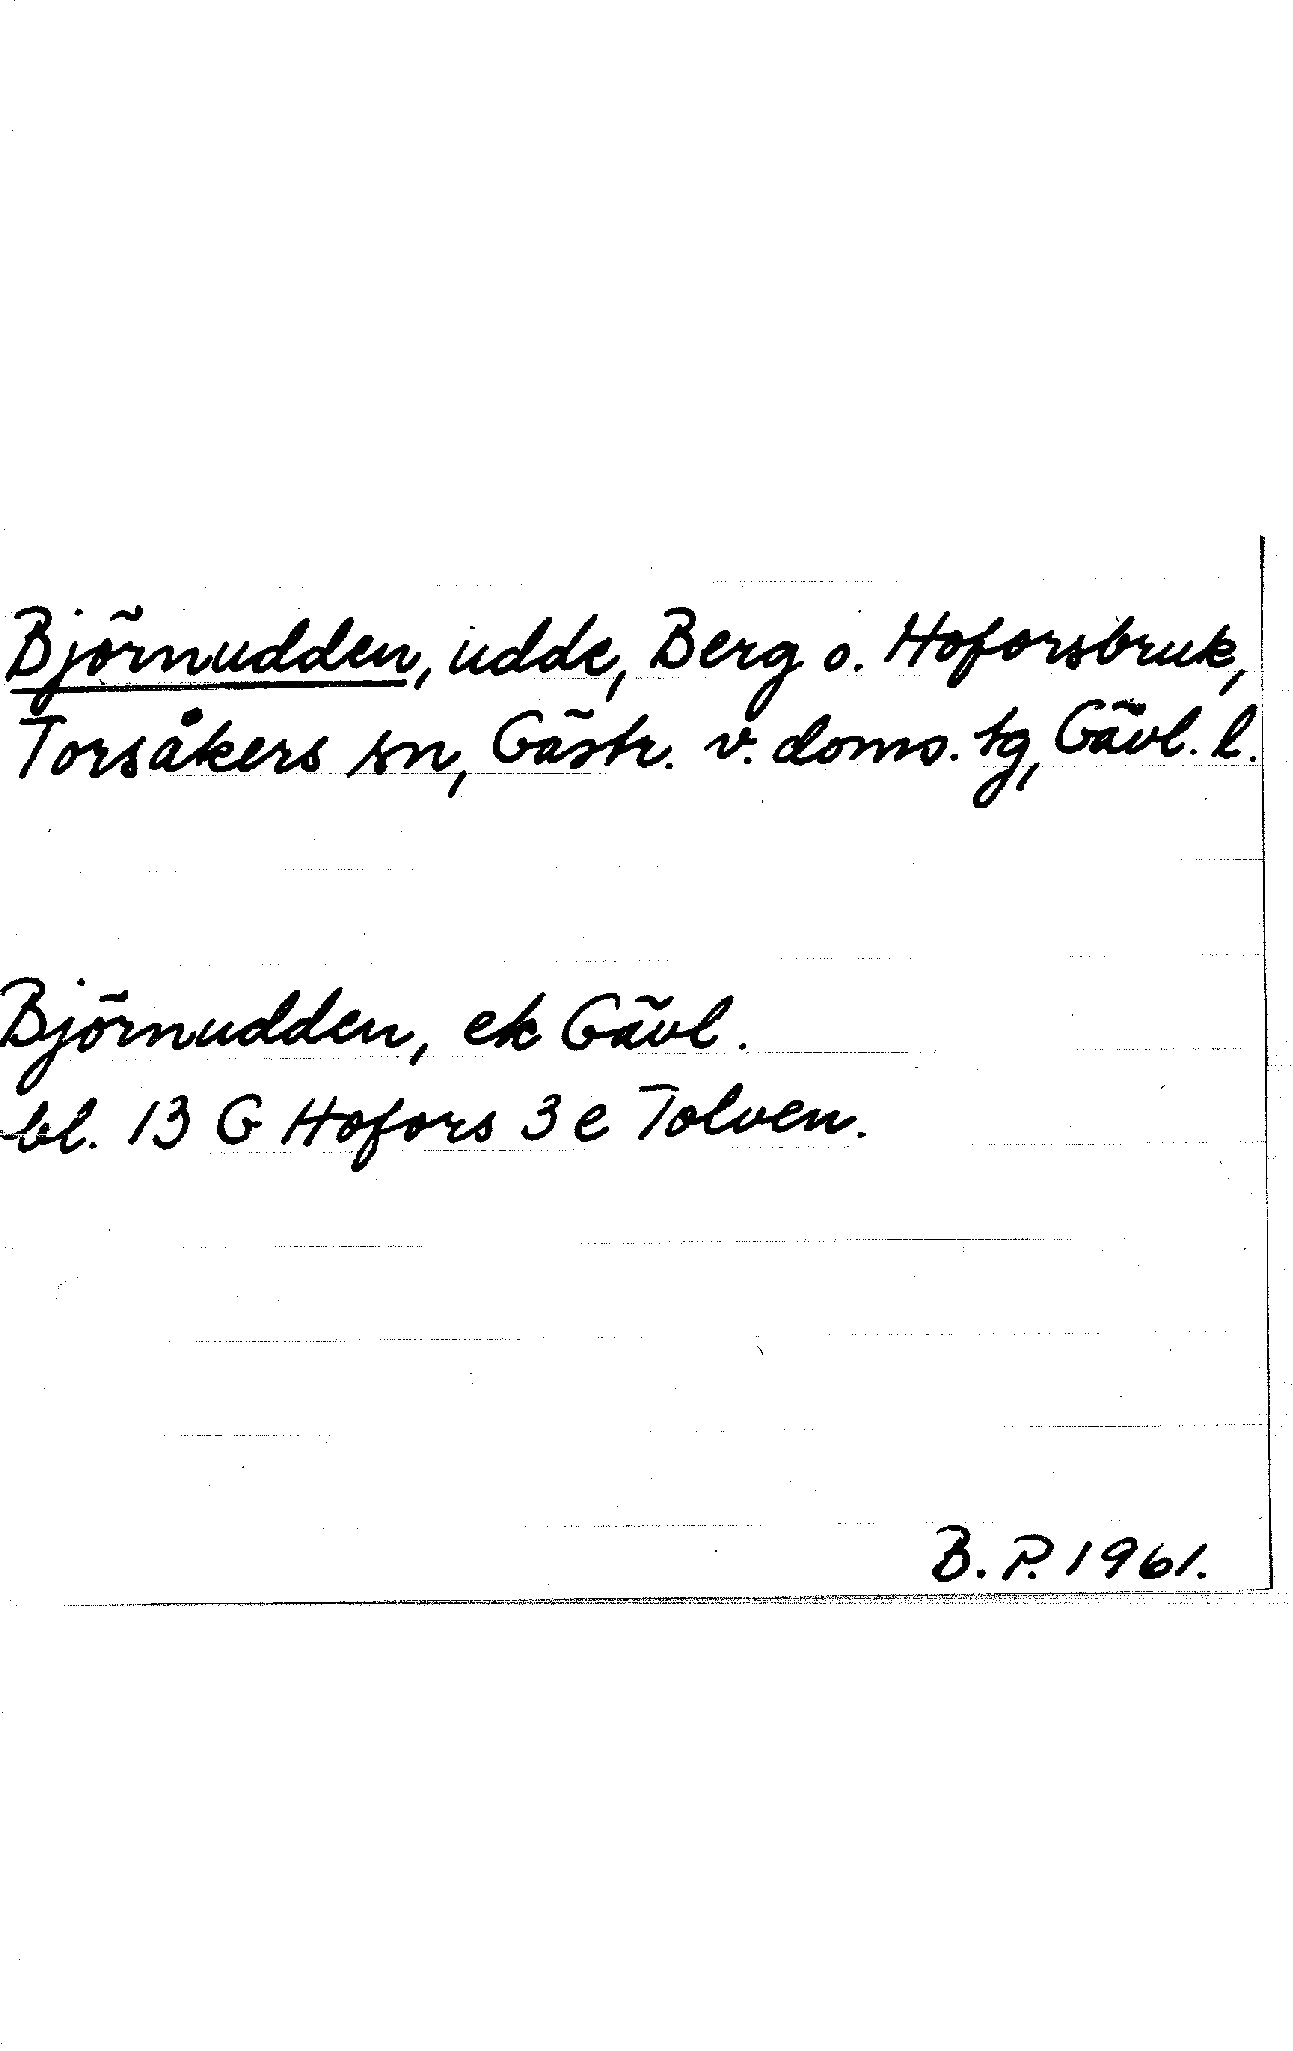 Björnudden, udde, Berg o. Hoforsbruk,
Torsåkers sn, Gästr. v. doms. tg, Gävl. l.
Björnudden, ek Gävl.
bl. 13 G Hofors 3 e Tolven.
B. P. 1961.